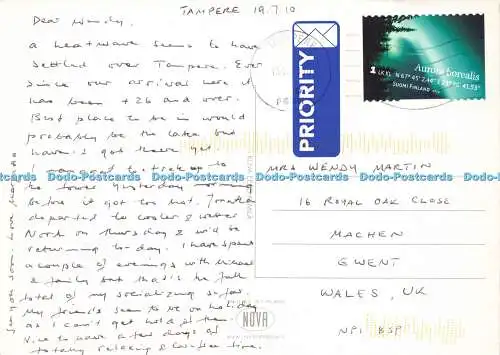 TAMPERE 19.7.10
Dear Wendy,
a heatwave seems to have
settled over Tampere. Ever
since our arrival here it
has been +26 and over.
Best place to be in would
probably be the lake but
haven't got there yet.
I managed to trek up to
the tower yesterday
before it got too hot.
departed to cooler & wetter
North on Thursday & will be
returning to-day. I have spent
a couple of evenings with
& family but that is the full
total of my socializing so far.
My friends seem to be on holiday
as I can't get hold of them.
Nice to have a few days of
totally relaxing &
See you soon. Love
PRIORITY
1 LK KL N 67° 45' E
Aurora borealis
SUOMI FINLAND
MRS WENDY MARTIN
16 ROYAL OAK CLOSE
MACHEN
GWENT
WALES, UK
NP1 8SP
NOVA
Dodo-Postcards Dodo-Postcards Dodo-Postcards Dodo-Postcards